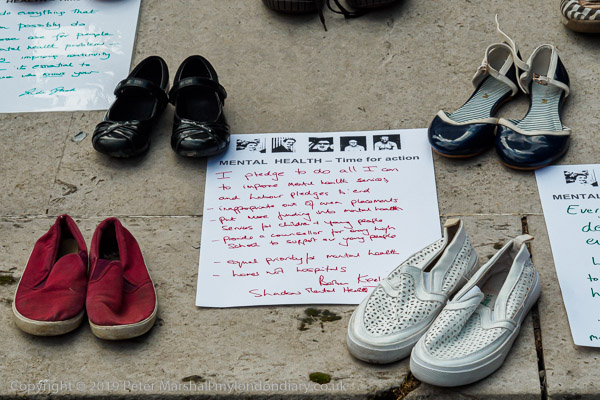 do everything that
possibly do
care for people
mental health problems
improving continuity
it is essential to
who knows your
MENTAL HEALTH – Time for action
I pledge to do all I can
to improve mental health services
and Labour pledges to end
- inappropriate out of area placements
- Put more funding into mental health
services for children & young people
- Provide a counsellor for every high
school to support our young people
- equal priority for mental health
- homes not hospitals
Shadow Mental Health
MENTAL
Copyright © 2019 Peter Marshall mylondondiary.co.uk